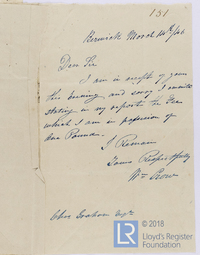 151
Berwick March 14th/46
Dear Sir
I am in receipt of yours
this evening and sorry I omitted
stating in my report the Fee
which I am in possession of
Pounds
I Remain
Yours Respectfully
Wm Crow
Chas Graham Esqr
© 2018
LR
Lloyd's Register
Foundation